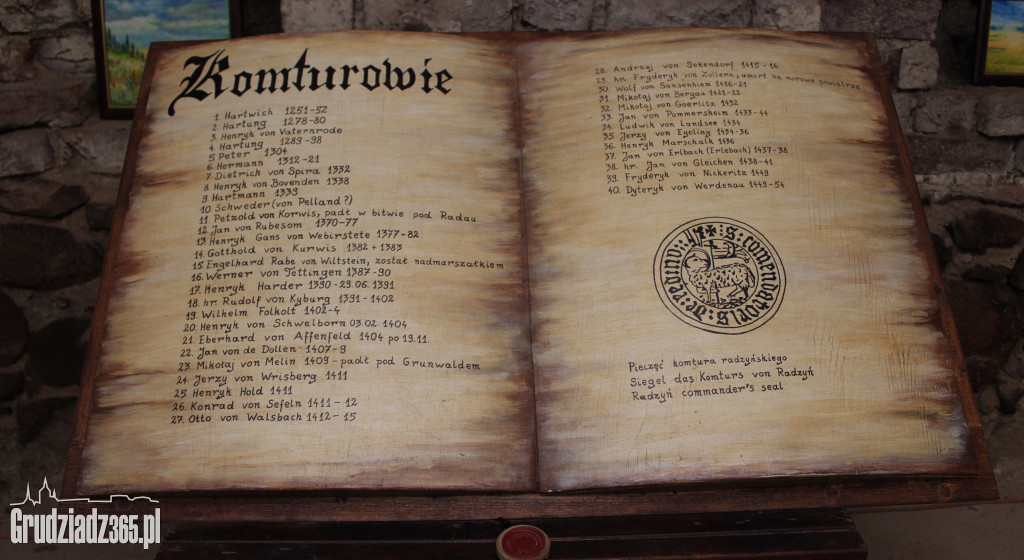 Komturowie
1. Hartwich 1251-52
2. Hartung 1278-80
3. Henryk von Vaternrode
4. Hartung 1289-98
5. Peter 1304
6. Hermann 1312-21
7. Dietrich von Spira 1332
8. Henryk von Bovenden 1338
9. Hartmann 1339
10. Schweder (von Pelland?)
11. Petzold von Korwis, padł w bitwie pod Radau
12. Jan von Rubesom 1370-77
13. Henryk Gans von Webirstete 1377-82
14. Gotthold von Kurwis 1382 + 1383
15. Engelhard Rabe von Wiltstein, został nadmarszałkiem
16. Werner von Tottingen 1387-90
17. Henryk Harder 1390-29.06.1391
18. hr. Rudolf von Kyburg 1391-1402
19. Wilhelm Folkolt 1402-4
20. Henryk von Schwelborn 03.02.1404
21. Eberhard von Affenfeld 1404 po 19.11.
22. Jan von de Dollen 1407-9
23. Mikołaj von Melin 1409 - padł pod Grunwaldem
24. Jerzy von Wrisberg 1411
25. Henryk Hold 1411
26. Konrad von Sefeln 1411-12
27. Otto von Walsbach 1412-15
28. Andrzej von Sekendorf 1415-16
29. hr. Fryderyk von Zollern, umarł na morowe powietrze
30. Wolf von Sansenhiem 1416-21
31. Mikołaj von Borgau 1421-22
32. Mikołaj von Goerlitz 1432
33. Jan von Pommersheim 1433-44
34. Ludwik von Landsee 1434
35. Jerzy von Egeling 1434-36
36. Henryk Marschalk 1436
37. Jan von Erlbach (Erlebach) 1437-38
38. hr. Jan von Gleichen 1438-41
39. Fryderyk von Nickeritz 1449
40. Dyteryk von Werdenau 1449-54
Pieczęć komtura radzyńskiego
Siegel das Komturs von Radzyń
Radzyń commander's seal
Grudziadz365.pl